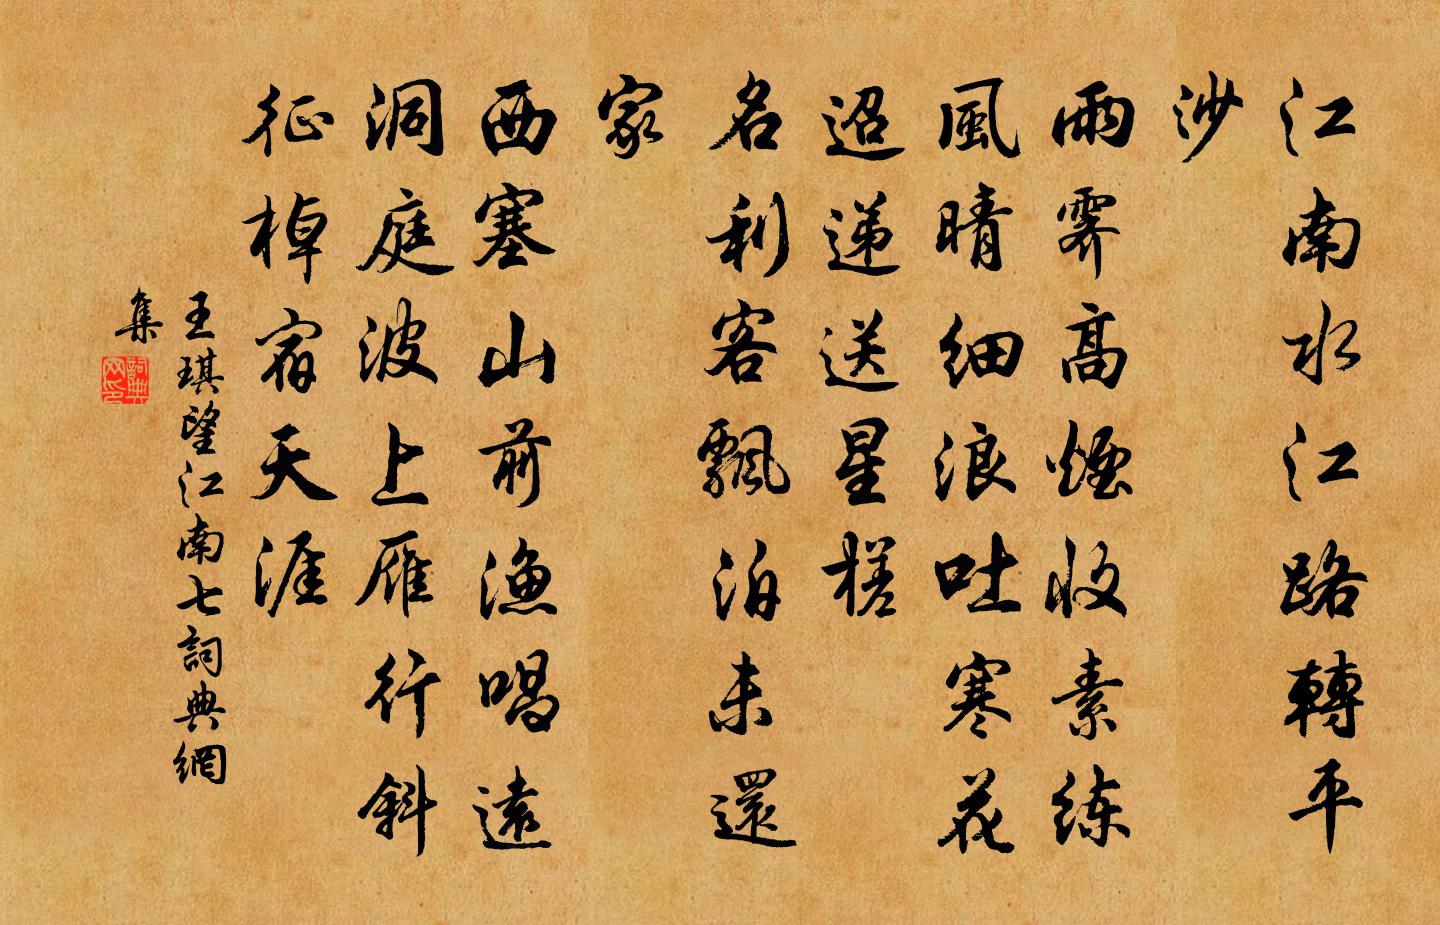 江南水江路轉平
沙
雨霽高煙收素练
風晴细浪吐寒花
迢递送星槎
名利客飄泊未還
家
西塞山前漁唱遠
洞庭波上雁行斜
征棹宿天涯
王琪望江南七詞典網
集
詞典网印